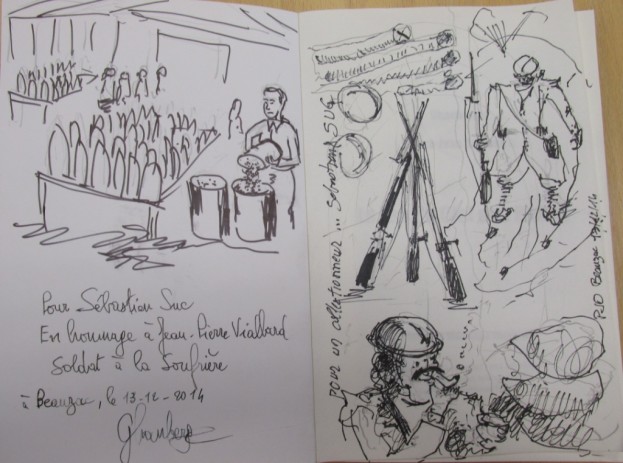 Pour Sébastien Suc
En hommage à Jean-Pierre Viallard
Soldat à la Soufrière
à Beauzac, le 13-12-2014
pour un collectionneur... Sébastien SUC
Beauzac